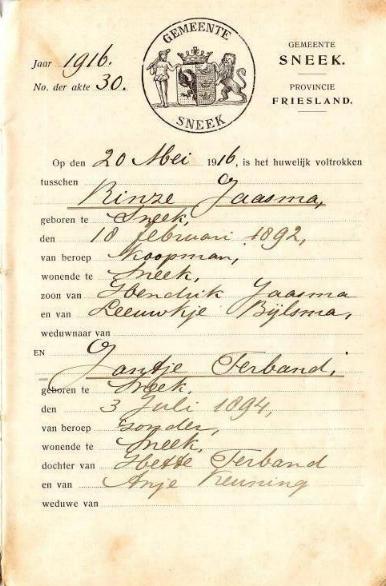 GEMEENTE
SNEEK
Jaar 1916.
No. der akte 30.
GEMEENTE
SNEEK.
PROVINCIE
FRIESLAND.
Op den 20 Mei 1916, is het huwelijk voltrokken
tusschen
Rinze Jaasma,
geboren te Sneek,
den 18 februari 1892,
van beroep Koopman,
wonende te Sneek,
zoon van Hendrik Jaasma
en van Leeuwkje Bijlsma,
weduwnaar van
EN
Jantje Terband,
geboren te Sneek,
den 3 Juli 1894,
van beroep zonder,
wonende te Sneek,
dochter van Hette Terband
en van Anje Keuning
weduwe van